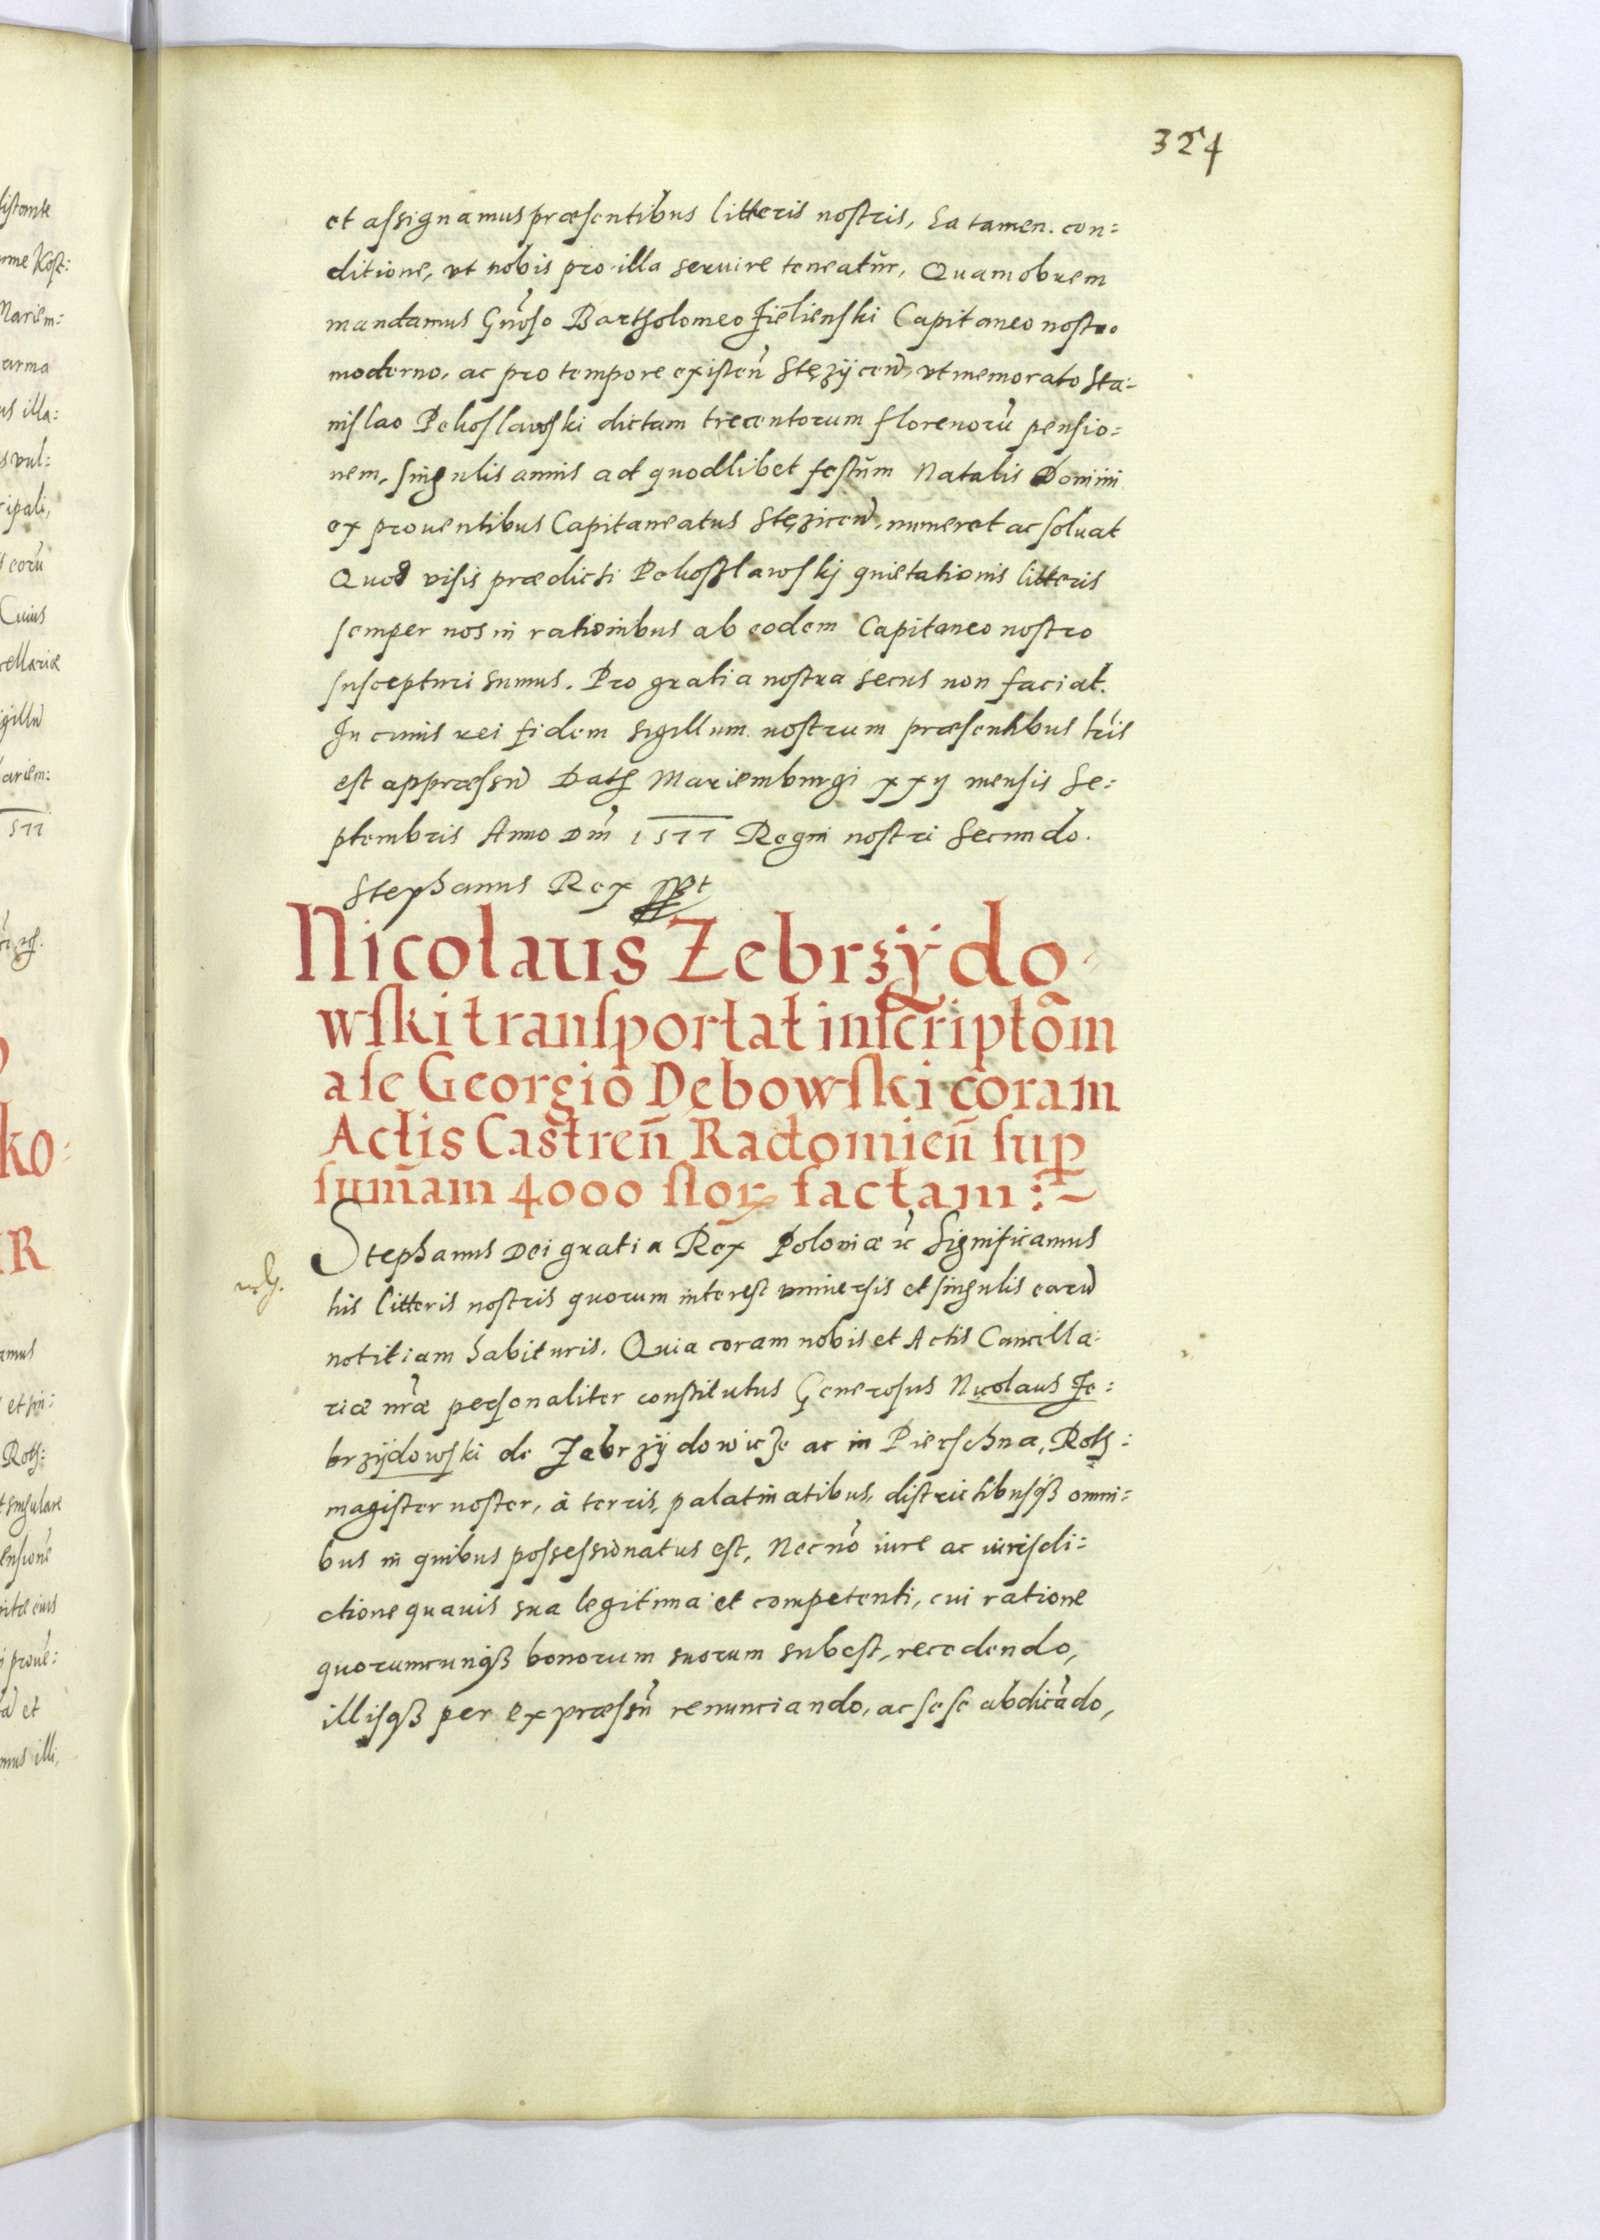 324
et assignamus præsentibus litteris nostris, Ea tamen con:
ditione, vt nobis pro illa seruire teneatur, Quamobrem
mandamus Gnoso Bartholomeo Zielienski Capitaneo nostro
moderno, ac pro tempore existen̄ Stęzÿcen̄, vt memorato Sta:
nislao Pekoslawski dictam trecentorum florenorū pensio:
nem, singulis annis ad quodlibet festum Natalis Domini
ex prouentibus Capitaneatus Stęzicen̄, numeret ac soluat
Quod visis prædicti Pekoslawskj quietationis litteris
semper nos in rationibus ab eodem Capitaneo nostro
suscepturi sumus. Pro gratia nostra secus non faciat.
In cuius rei fidem sigillum nostrum præsentibus lr̄is
est appræssū Datȝ Mariemburgi xxij mensis Se:
ptembris Anno Dn̄i 1577 Regni nostri Secundo.
Stephanus Rex sspt
Nicolaus Zebrzÿdo
wski transportat inscriptōm
a se Georgio Debowski coram
Actis Castren̄ Radomien̄ sup
sum̄am 4000 flor factam :~
Stephanus Dei gratia Rex Poloniæ ꝛc Significamus
his litteris nostris quorum interest vniuersis et singulis earū
notitiam habituris. Quia coram nobis et Actis Cancella:
riæ nr̄æ personaliter constitutus Generosus Nicolaus Ze:
brzÿdowski de Zebrzÿdowicze ac in Pierschna, Roth:
magister noster, à terris, palatinatibus, districtibusqȝ omni:
bus in quibus possessionatus est, Necnō iure ac iurisdi:
ctione quauis sua legitima et competenti, cui ratione
quorumcunqȝ bonorum suorum subest, recedendo,
illisqȝ per expræssū renunciando, ac sese abdicādo,